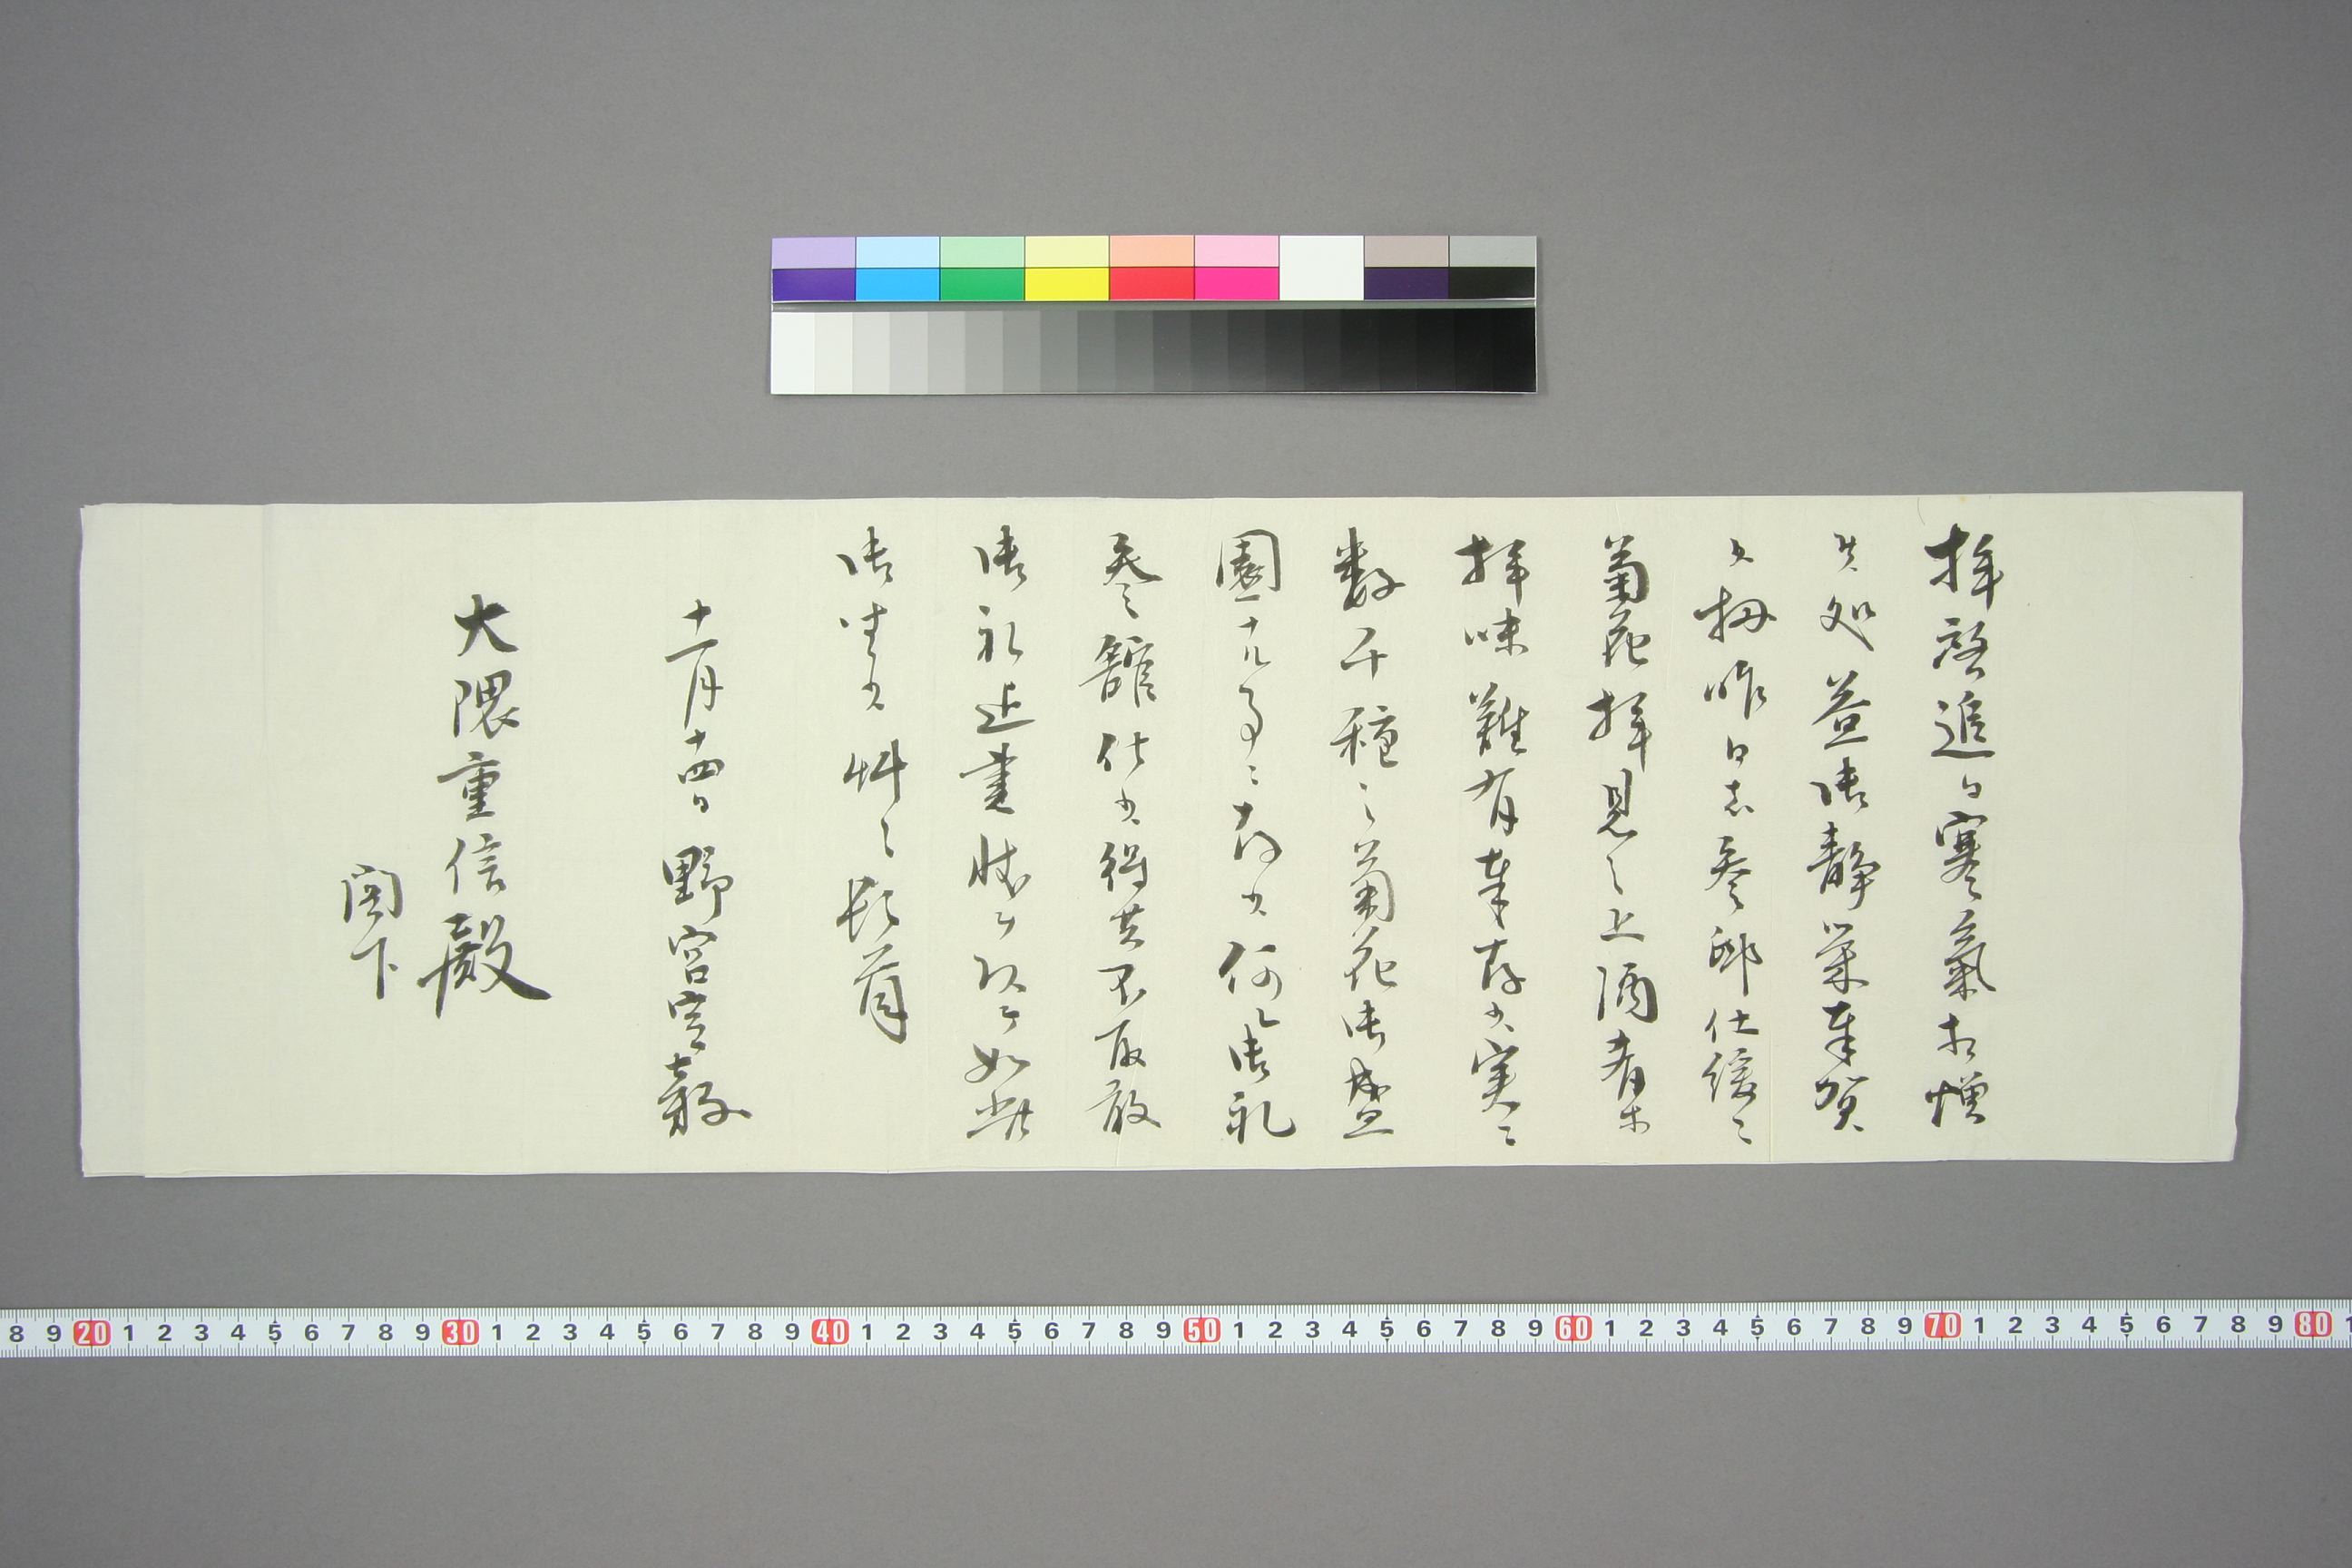 拝啓追日寒気相増
候処益御静栄奉賀
候扨昨日者参邸仕緩々
菊花拝見之上酒肴等
拝味難有奉存候実ニ
数千種之菊花御盛
園
参館仕候得共不取敢
御礼迄書状ヲ以テ如此
御坐候艸々頓首
十一月十四日 野宮定穀
大隈重信殿
閣下
8 9 20 1 2 3 4 5 6 7 8 9 30 1 2 3 4 5 6 7 8 9 40 1 2 3 4 5 6 7 8 9 50 1 2 3 4 5 6 7 8 9 60 1 2 3 4 5 6 7 8 9 70 1 2 3 4 5 6 7 8 9 80 1